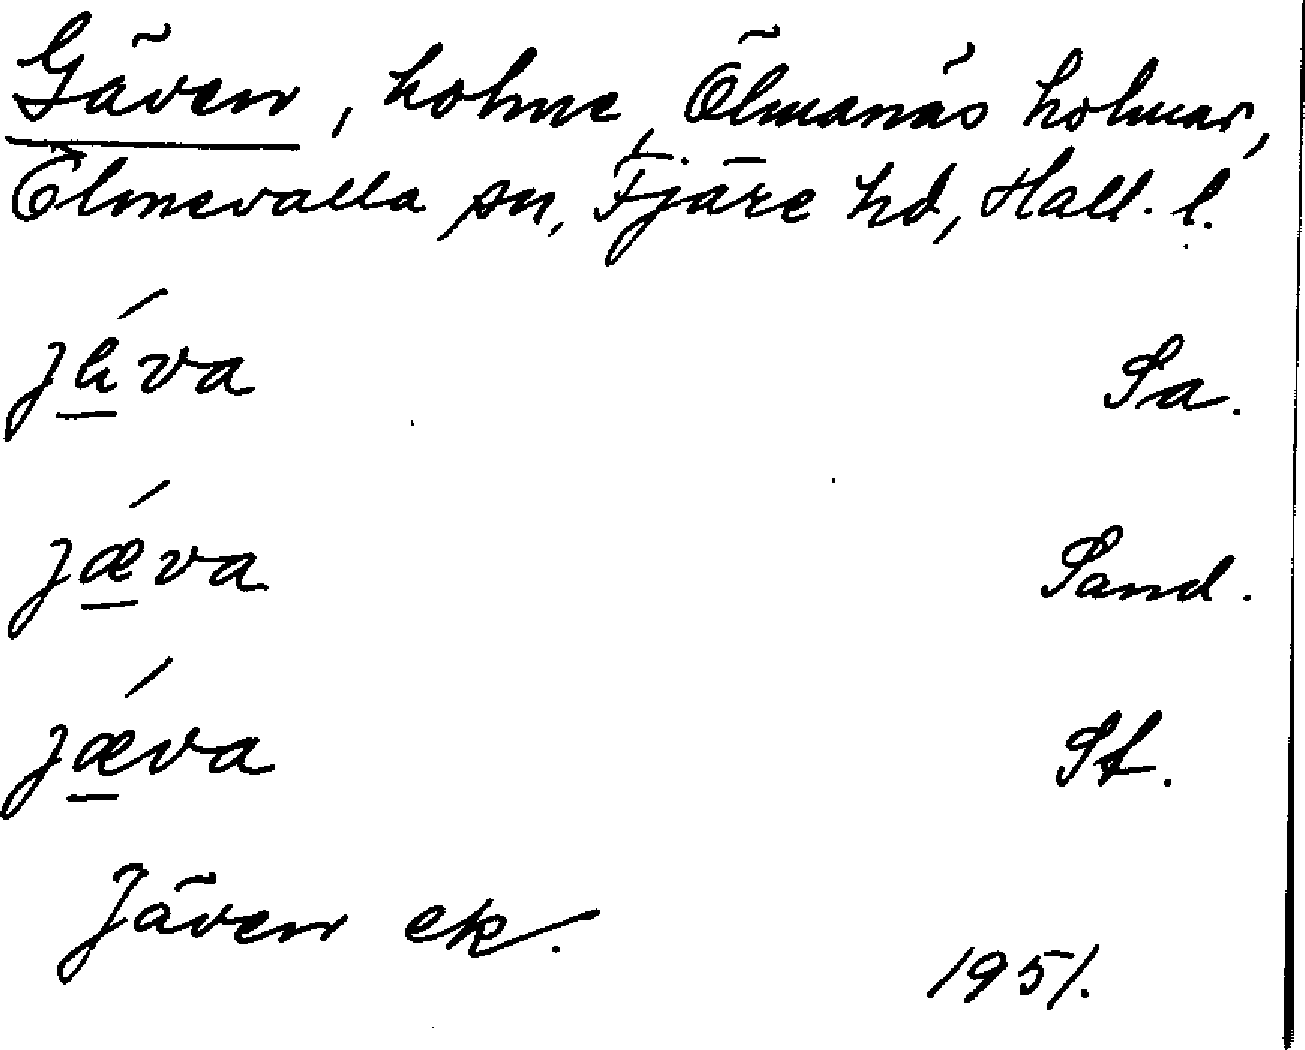 Gäven, holme, Ölmanäs holmar,
Ölmevalla sn, Fjäre hd, Hall. l.
Sa.
jǽva Sand.
jǽva St.
Jäven ek.
1951.